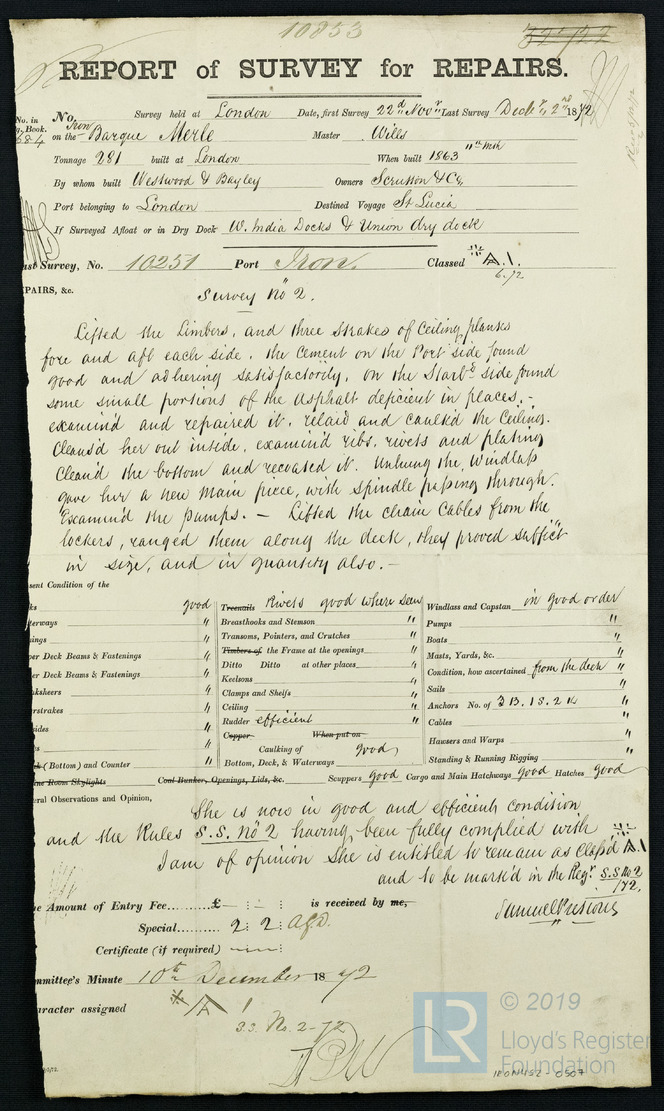 10853
REPORT of SURVEY for REPAIRS.
No. in
No. Survey held at London Date, first Survey 22d Novr Last Survey Decr 2nd 1872
Book.
684
on the Iron Barque Merle Master Wills
Tonnage 281 built at London When built 1863 11th Mth
By whom built Westwood & Bayley Owners Scrutton & Co,
Port belonging to London Destined Voyage St Lucia
If Surveyed Afloat or in Dry Dock W. India Docks & Union dry dock
ast Survey, No. 10251 Port Iron. Classed A.1.
6.72
PAIRS, &c.
Survey No 2.
Lifted the Limbers, and three strakes of Ceiling planks
fore and aft each side, the cement on the Port side found
good and adhering satisfactorily, on the Starbd side found
some small portions of the Asphalt deficient in places,-
examin'd and repaired it, relaid and caulk'd the Ceiling.
Cleans'd her out inside, examin'd ribs, rivets and plating
Clean'd the bottom and recoated it. Unhung the Windlass
gave her a new main piece, with spindle passing through.
Examin'd the pumps. - Lifted the chain Cables from the
lockers, ranged them along the deck, they proved suffict
in size, and in quantity also. -
sent Condition of the
ks good Treenails Rivets good where seen Windlass and Capstan in good order
terways " Breasthooks and Stemson " Pumps "
ings " Transoms, Pointers, and Crutches " Boats "
per Deck Beams & Fastenings " Timbers of the Frame at the openings " Masts, Yards, &c. "
er Deck Beams & Fastenings " Ditto Ditto at other places " Condition, how ascertained from the deck "
Keelsons " Sails "
nksheers " Clamps and Shelfs " Anchors No. of 3 B. 1 S. 2 K "
rstrakes " Ceiling " Cables "
sides " Rudder efficient " Hawsers and Warps "
s " Copper When put on
Caulking of good
(Bottom) and Counter " Bottom, Deck, & Waterways Standing & Running Rigging "
ine Room Skylights Coal Bunker, Openings, Lids, &c. Scuppers good Cargo and Main Hatchways good Hatches good
ral Observations and Opinion,
She is now in good and efficient condition
and the Rules S.S. No 2 having been fully complied with
I am of opinion She is entitled to remain as Class'd A1
and to be mark'd in the Regr S.S No 2
/72.
e Amount of Entry Fee...... £ is received by me,
Special......... 2 : 2 :
Certificate (if required)
mmittee's Minute 10th December 1872
aracter assigned A 1
S.S. No. 2-72
LR
© 2019
Lloyd's Register
Foundation